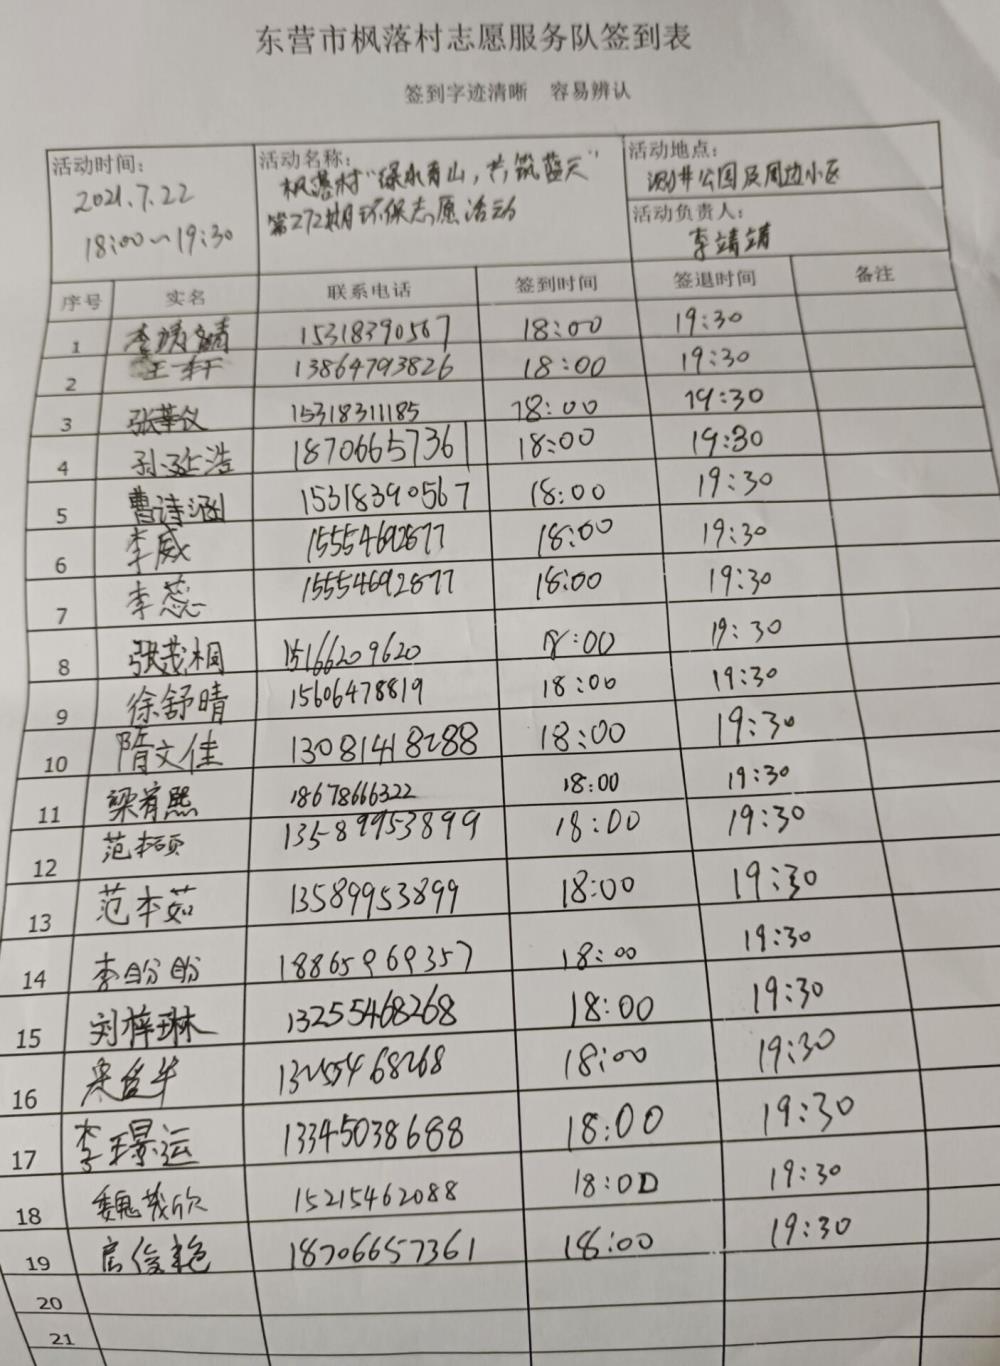 东营市枫落村志愿服务队签到表
签到字迹清晰 容易辨认
活动时间: 2021.7.22 18:00~19:30
活动名称: 枫落村"绿水青山,共筑蓝天"
第272期环保志愿活动
活动地点: 测井公园及周边小区
活动负责人: 李靖靖
序号 实名 联系电话 签到时间 签退时间 备注
1 李靖靖 15318390567 18:00 19:30
2 王轩 13864793826 18:00 19:30
3 15318311185 18:00 19:30
4 18706657361 18:00 19:30
5 曹诗涵 15318390567 18:00 19:30
6 李威 15554692877 18:00 19:30
7 李蕊 15554692877 18:00 19:30
8 张茂桐 15166209620 18:00 19:30
9 徐舒晴 15606478819 18:00 19:30
10 隋文佳 13081418288 18:00 19:30
11 梁宥熙 18678666322 18:00 19:30
12 范本硕 13589953899 18:00 19:30
13 范本茹 13589953899 18:00 19:30
14 李盼盼 18865969357 18:00 19:30
15 刘梓琳 13255468268 18:00 19:30
16 13255468268 18:00 19:30
17 李璟运 13345038688 18:00 19:30
18 魏茂欣 15215462088 18:00 19:30
19 房俊艳 18706657361 18:00 19:30
20
21